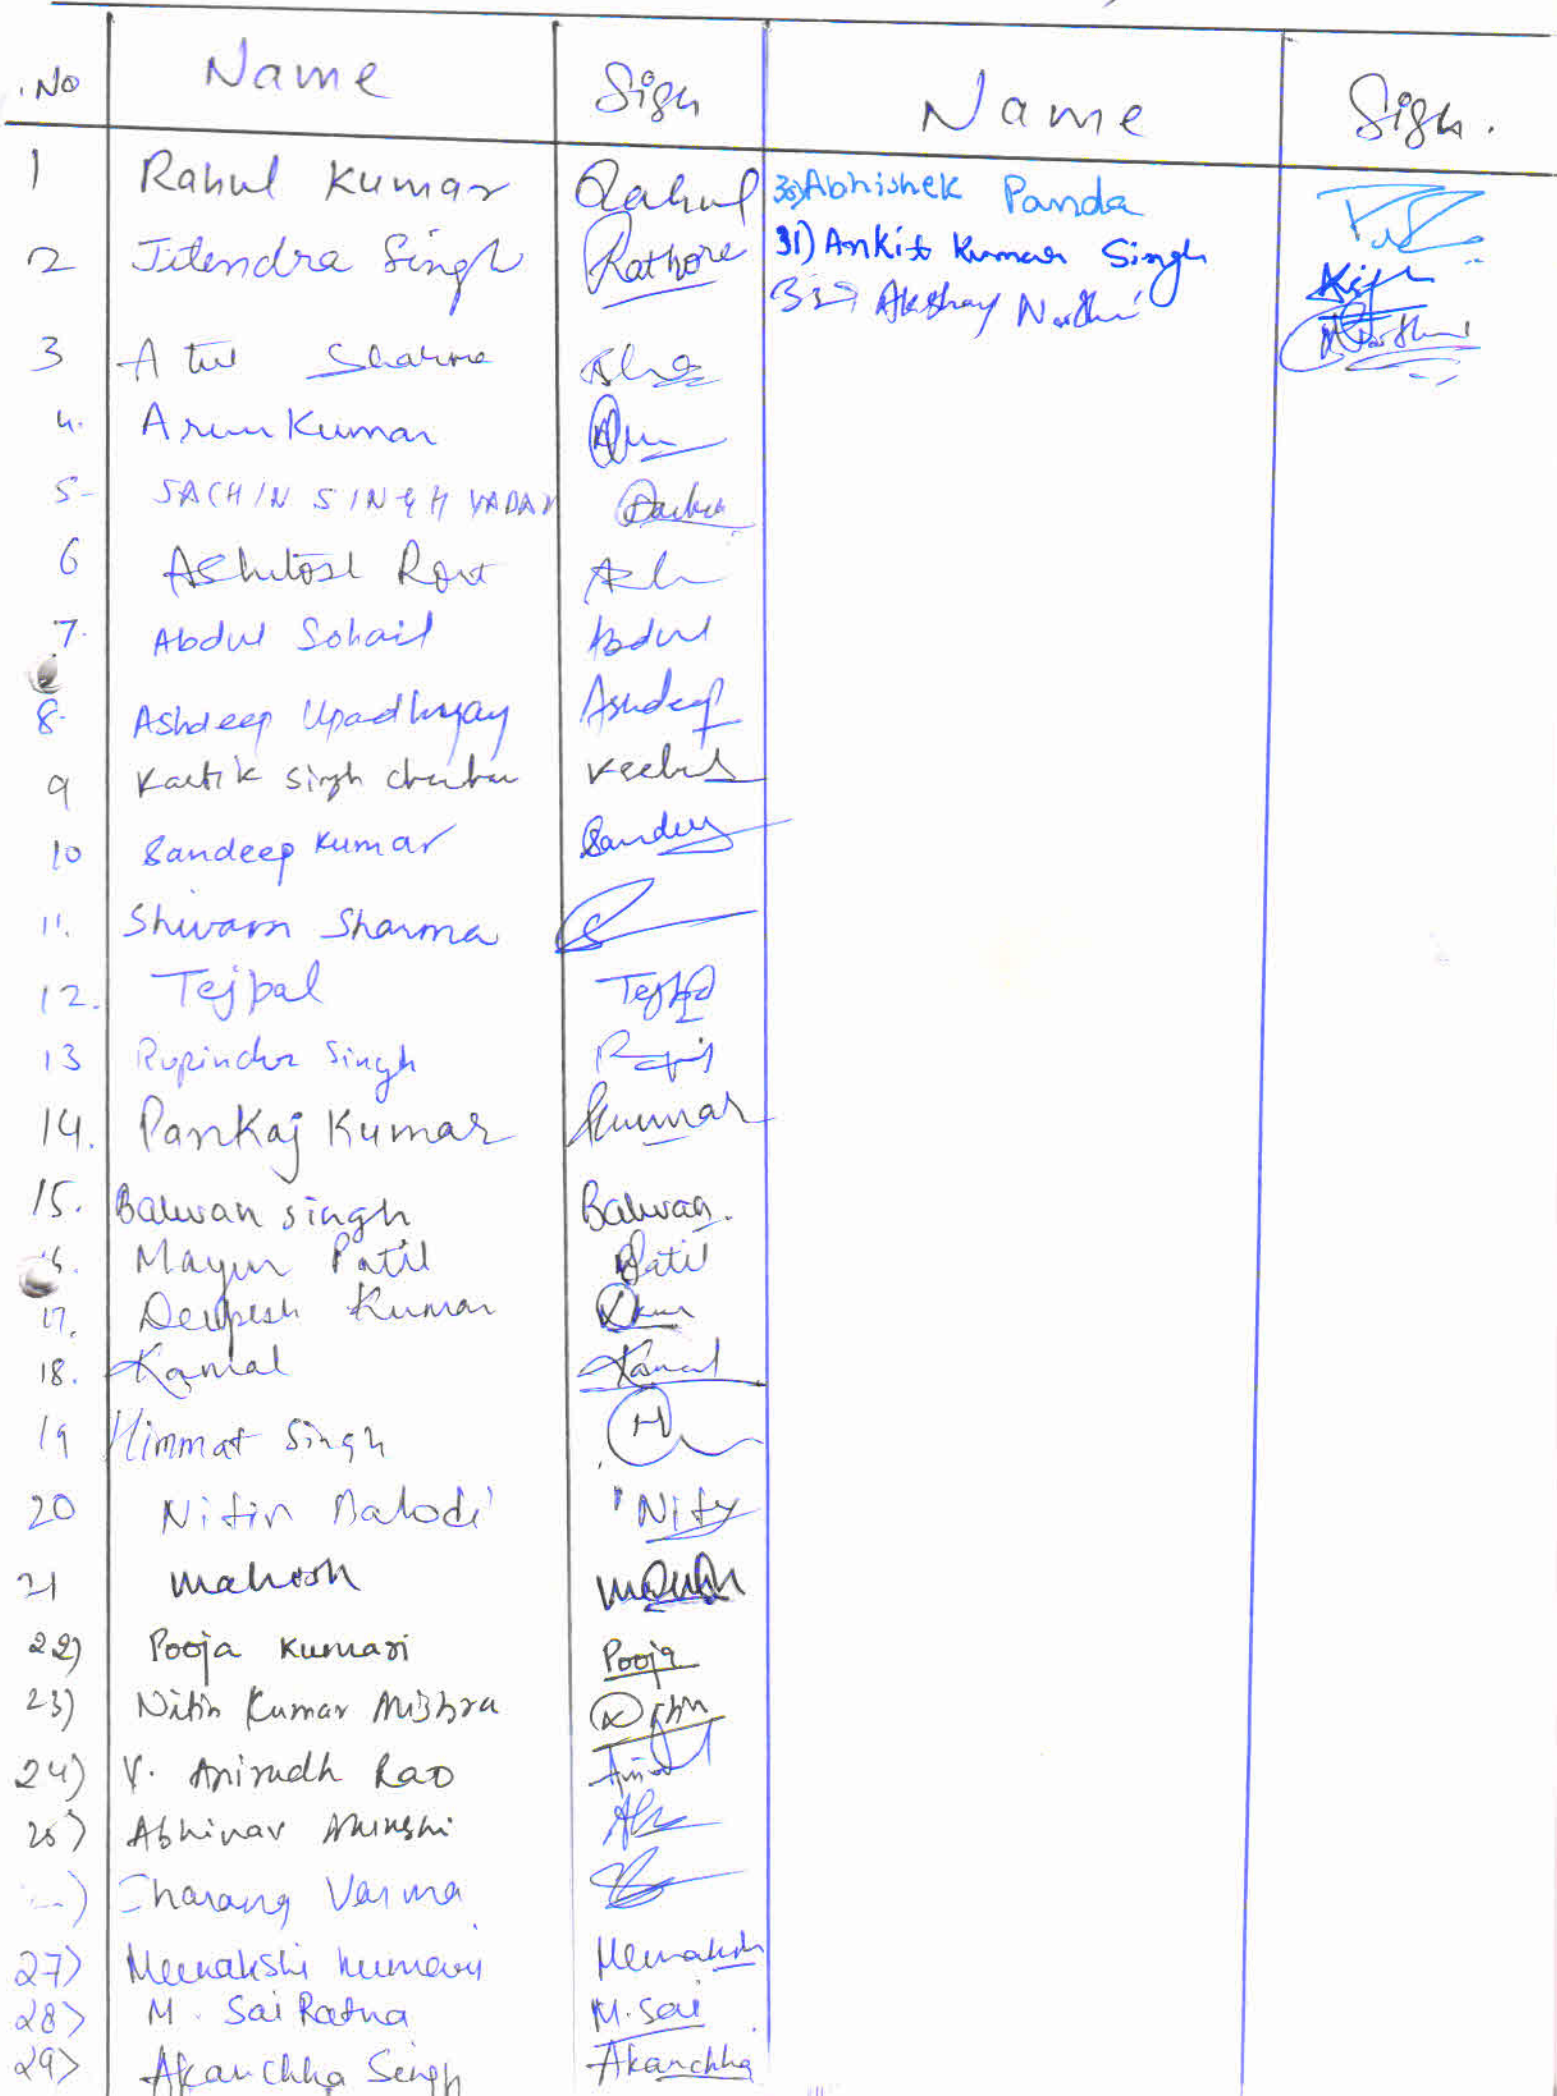 .No Name Sign Name Sign.
1 Rahul Kumar Rahul 30) Abhishek Panda
2 Jitendra Singh Rathore 31) Ankit Kumar Singh
32) Akshay
3 Atul Sharma
4. Arun Kumar
5- SACHIN SINGH YADAV
6 Ashutosh Rout
7. Abdul Sohail Abdul
8. Ashdeep Upadhyay Ashdeep
9 Kartik Singh
10 Sandeep Kumar Sandeep
11. Shivam Sharma
12. Tejpal Tejpal
13 Rupinder Singh
14. Pankaj Kumar Kumar
15. Balwan Singh Balwan.
Mayur Patil Patil
17. Deepesh Kumar
18. Kamal Kamal
19 Himmat Singh H
20 Nitin Balodi
21 Mahesh Mahesh
22) Pooja Kumari Pooja
23) Nitin Kumar Mishra
24) Y. Anirudh Rao
25) Abhinav Munshi
Charang Varma
27) Meenakshi Kumari Meenakshi
28) M. Sai Ratna M. Sai
29) Akanchha Singh Akanchha